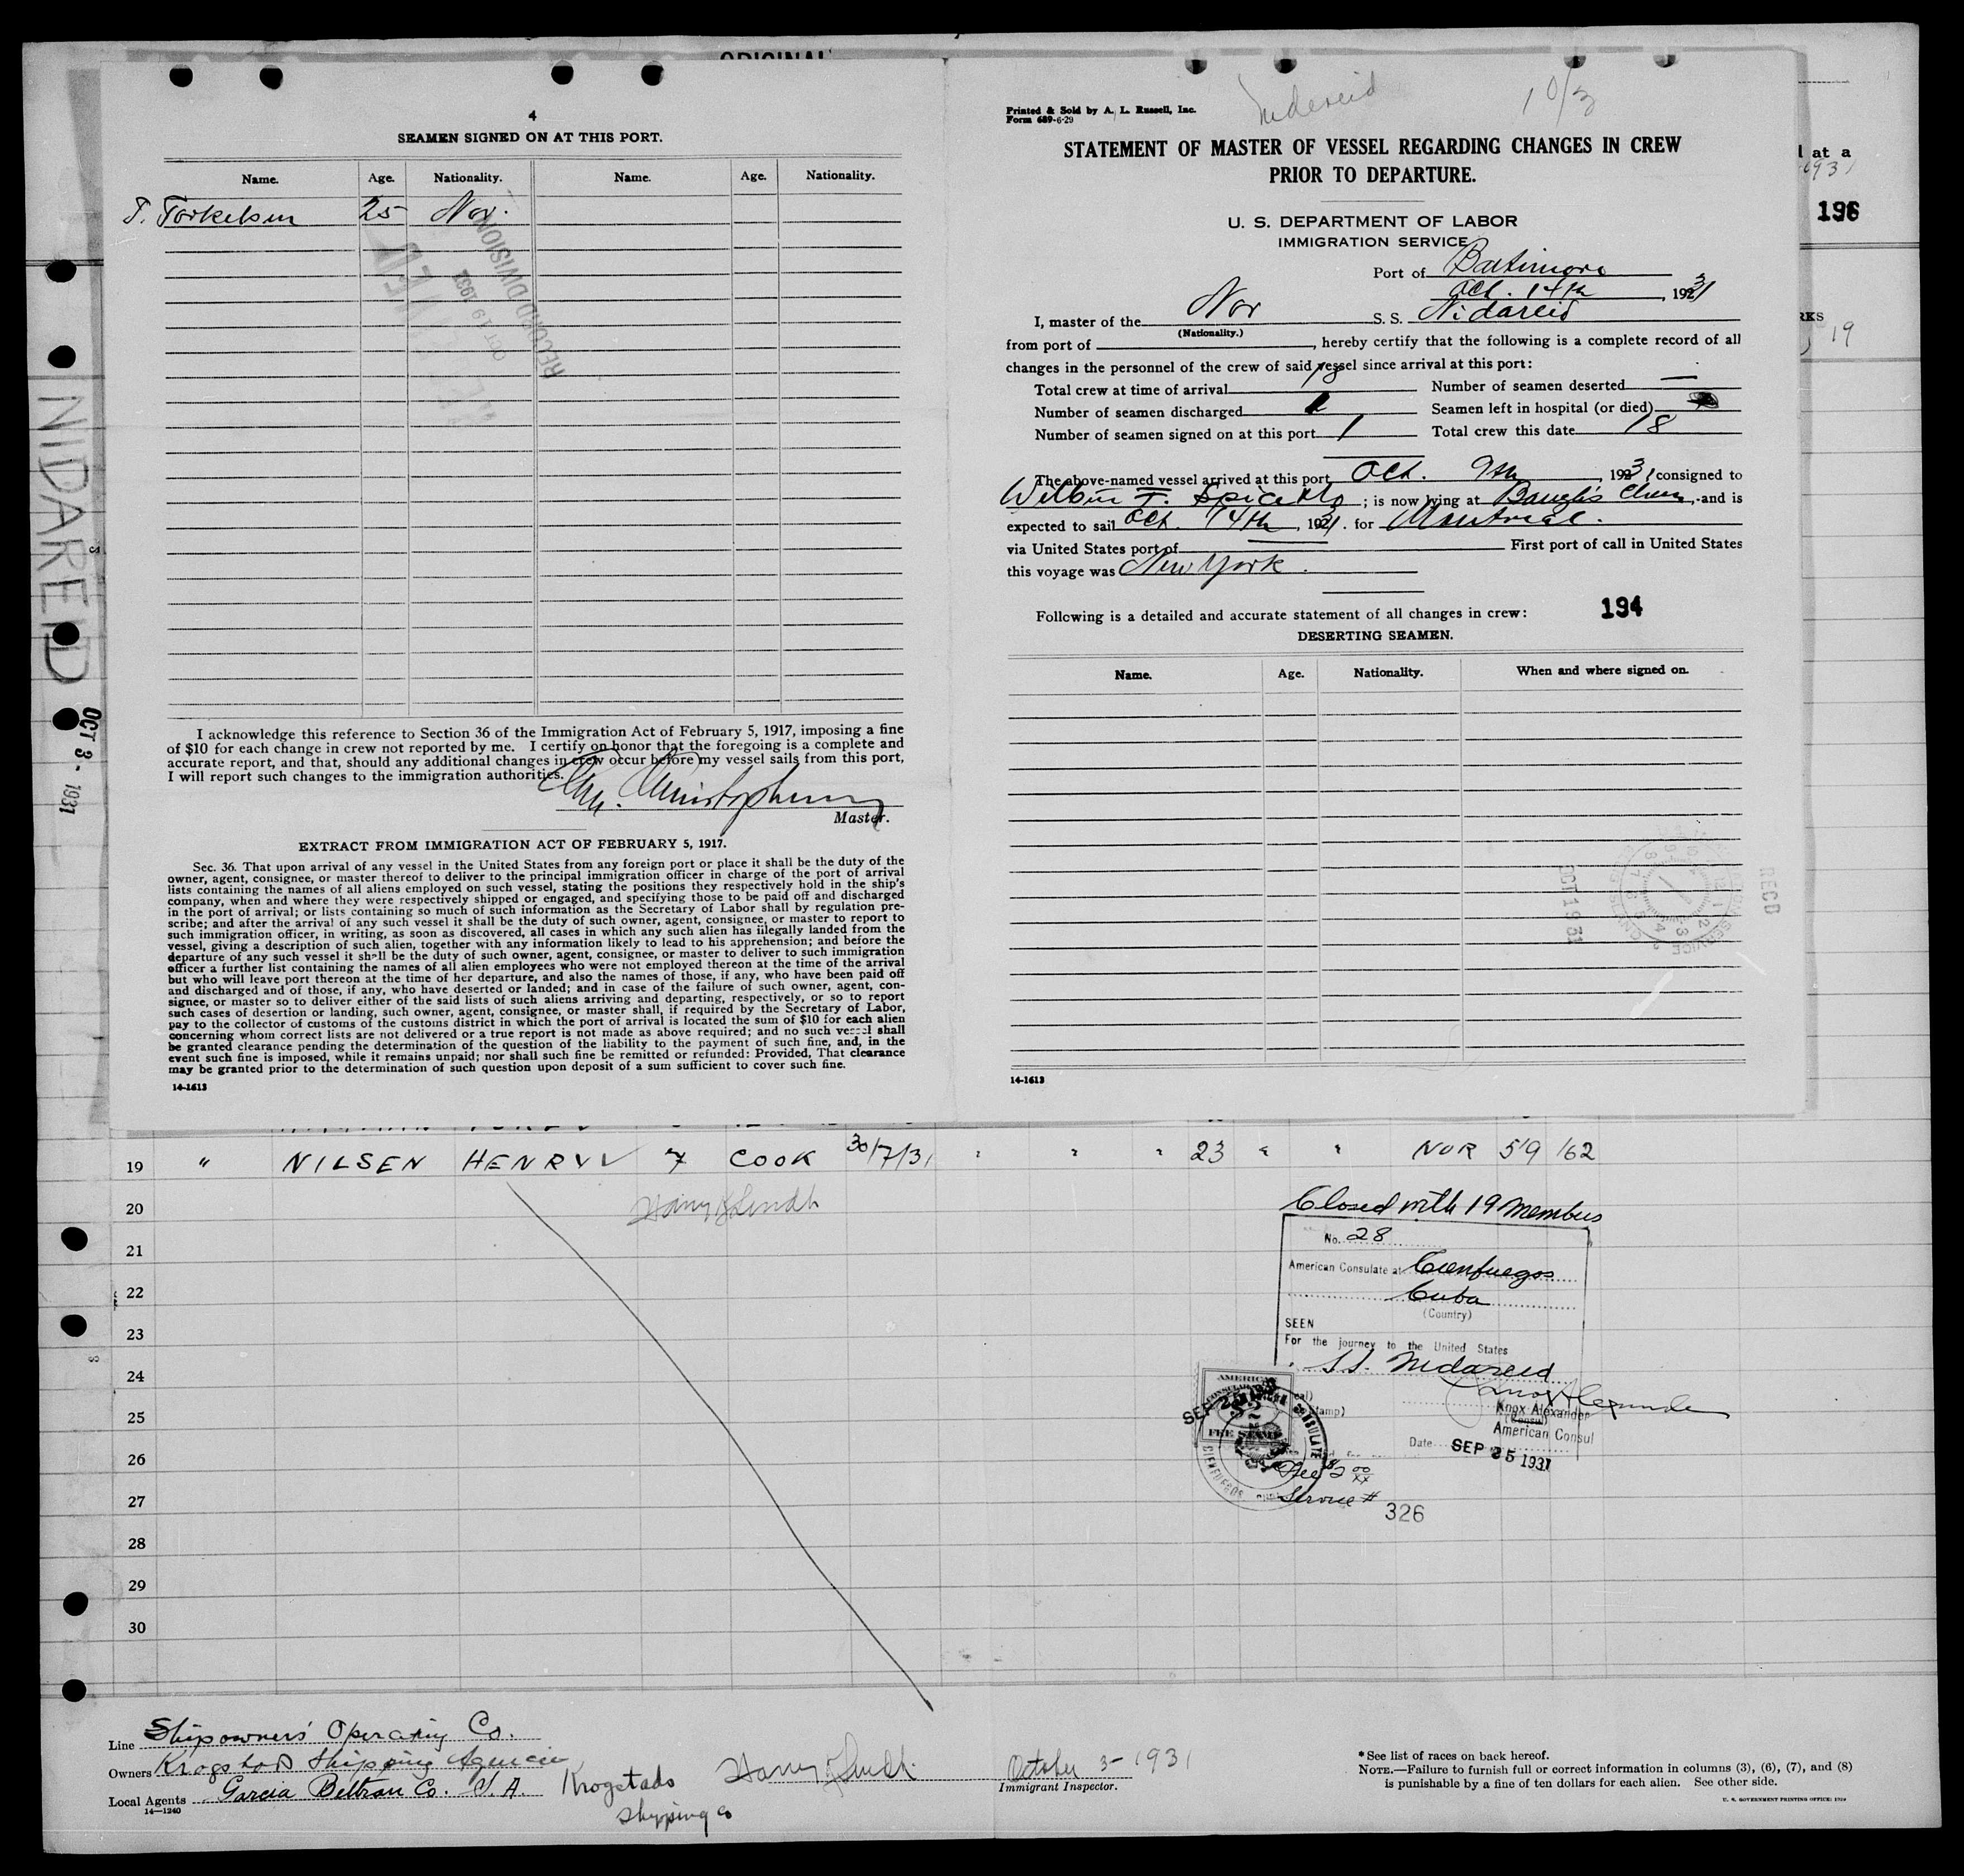 ORIGINAL
4
SEAMEN SIGNED ON AT THIS PORT.
Name. Age. Nationality. Name. Age. Nationality.
T. Torkelsen 25 Nor.
RECORD DIVISION
OCT 19 1931
I acknowledge this reference to Section 36 of the Immigration Act of February 5, 1917, imposing a fine
of $10 for each change in crew not reported by me. I certify on honor that the foregoing is a complete and
accurate report, and that, should any additional changes in crew occur before my vessel sails from this port,
I will report such changes to the immigration authorities.
Master.
EXTRACT FROM IMMIGRATION ACT OF FEBRUARY 5, 1917.
Sec. 36. That upon arrival of any vessel in the United States from any foreign port or place it shall be the duty of the
owner, agent, consignee, or master thereof to deliver to the principal immigration officer in charge of the port of arrival
lists containing the names of all aliens employed on such vessel, stating the positions they respectively hold in the ship's
company, when and where they were respectively shipped or engaged, and specifying those to be paid off and discharged
in the port of arrival; or lists containing so much of such information as the Secretary of Labor shall by regulation pre-
scribe; and after the arrival of any such vessel it shall be the duty of such owner, agent, consignee, or master to report to
such immigration officer, in writing, as soon as discovered, all cases in which any such alien has illegally landed from the
vessel, giving a description of such alien, together with any information likely to lead to his apprehension; and before the
departure of any such vessel it shall be the duty of such owner, agent, consignee, or master to deliver to such immigration
officer a further list containing the names of all alien employees who were not employed thereon at the time of the arrival
but who will leave port thereon at the time of her departure, and also the names of those, if any, who have been paid off
and discharged and of those, if any, who have deserted or landed; and in case of the failure of such owner, agent, con-
signee, or master so to deliver either of the said lists of such aliens arriving and departing, respectively, or so to report
such cases of desertion or landing, such owner, agent, consignee, or master shall, if required by the Secretary of Labor,
pay to the collector of customs of the customs district in which the port of arrival is located the sum of $10 for each alien
concerning whom correct lists are not delivered or a true report is not made as above required; and no such vessel shall
be granted clearance pending the determination of the question of the liability to the payment of such fine, and, in the
event such fine is imposed, while it remains unpaid; nor shall such fine be remitted or refunded: Provided, That clearance
may be granted prior to the determination of such question upon deposit of a sum sufficient to cover such fine.
14-1613
NIDAREID
OCT 3 - 1931
Printed & Sold by A. L. Russell, Inc.
Form 689-6-29
Nidareid 10/3
STATEMENT OF MASTER OF VESSEL REGARDING CHANGES IN CREW
PRIOR TO DEPARTURE.
U. S. DEPARTMENT OF LABOR
IMMIGRATION SERVICE
Port of Baltimore
Oct. 14th, 1931
I, master of the Nor S. S. Nidareid
(Nationality.)
from port of , hereby certify that the following is a complete record of all
changes in the personnel of the crew of said vessel since arrival at this port:
Total crew at time of arrival 18 Number of seamen deserted —
Number of seamen discharged 1 Seamen left in hospital (or died)
Number of seamen signed on at this port 1 Total crew this date 18
The above-named vessel arrived at this port Oct. 9th, 1931 consigned to
Wilbur F. Spice & Co ; is now lying at Baugh's Chem, and is
expected to sail Oct. 14th, 1931. for Montreal.
via United States port of First port of call in United States
this voyage was New York.
Following is a detailed and accurate statement of all changes in crew: 194
DESERTING SEAMEN.
Name. Age. Nationality. When and where signed on.
RECD
OCT 19 31
14-1613
d at a
1931
196
RKS
19
19 " NILSEN HENRY 7 COOK 30/7/31 " " " 23 " " NOR 5'9 162
20 Harry Lindh
21
22
23
24
25
26
27
28
29
30
Closed with 19 Members
No. 28
American Consulate at Cienfuegos
Cuba
(Country)
SEEN
For the journey to the United States
S.S. Nidareid
Knox Alexander
Knox Alexander
(Consul)
American Consul
Date SEP 25 1931
AMERICAN
CONSULAR
$2
FEE STAMP
SEP 25 1931
CONSULATE
CIENFUEGOS
Fee $2 00/xx
Service # 326
Line Shipowners' Operating Co.
Owners Krogstad Shipping Agencie
Local Agents Garcia Beltran Co. S. A. Krogstads
Shipping Co
14—1240
Harry Lindh October 3 - 1931
Immigrant Inspector.
* See list of races on back hereof.
NOTE.—Failure to furnish full or correct information in columns (3), (6), (7), and (8)
is punishable by a fine of ten dollars for each alien. See other side.
U. S. GOVERNMENT PRINTING OFFICE: 1929